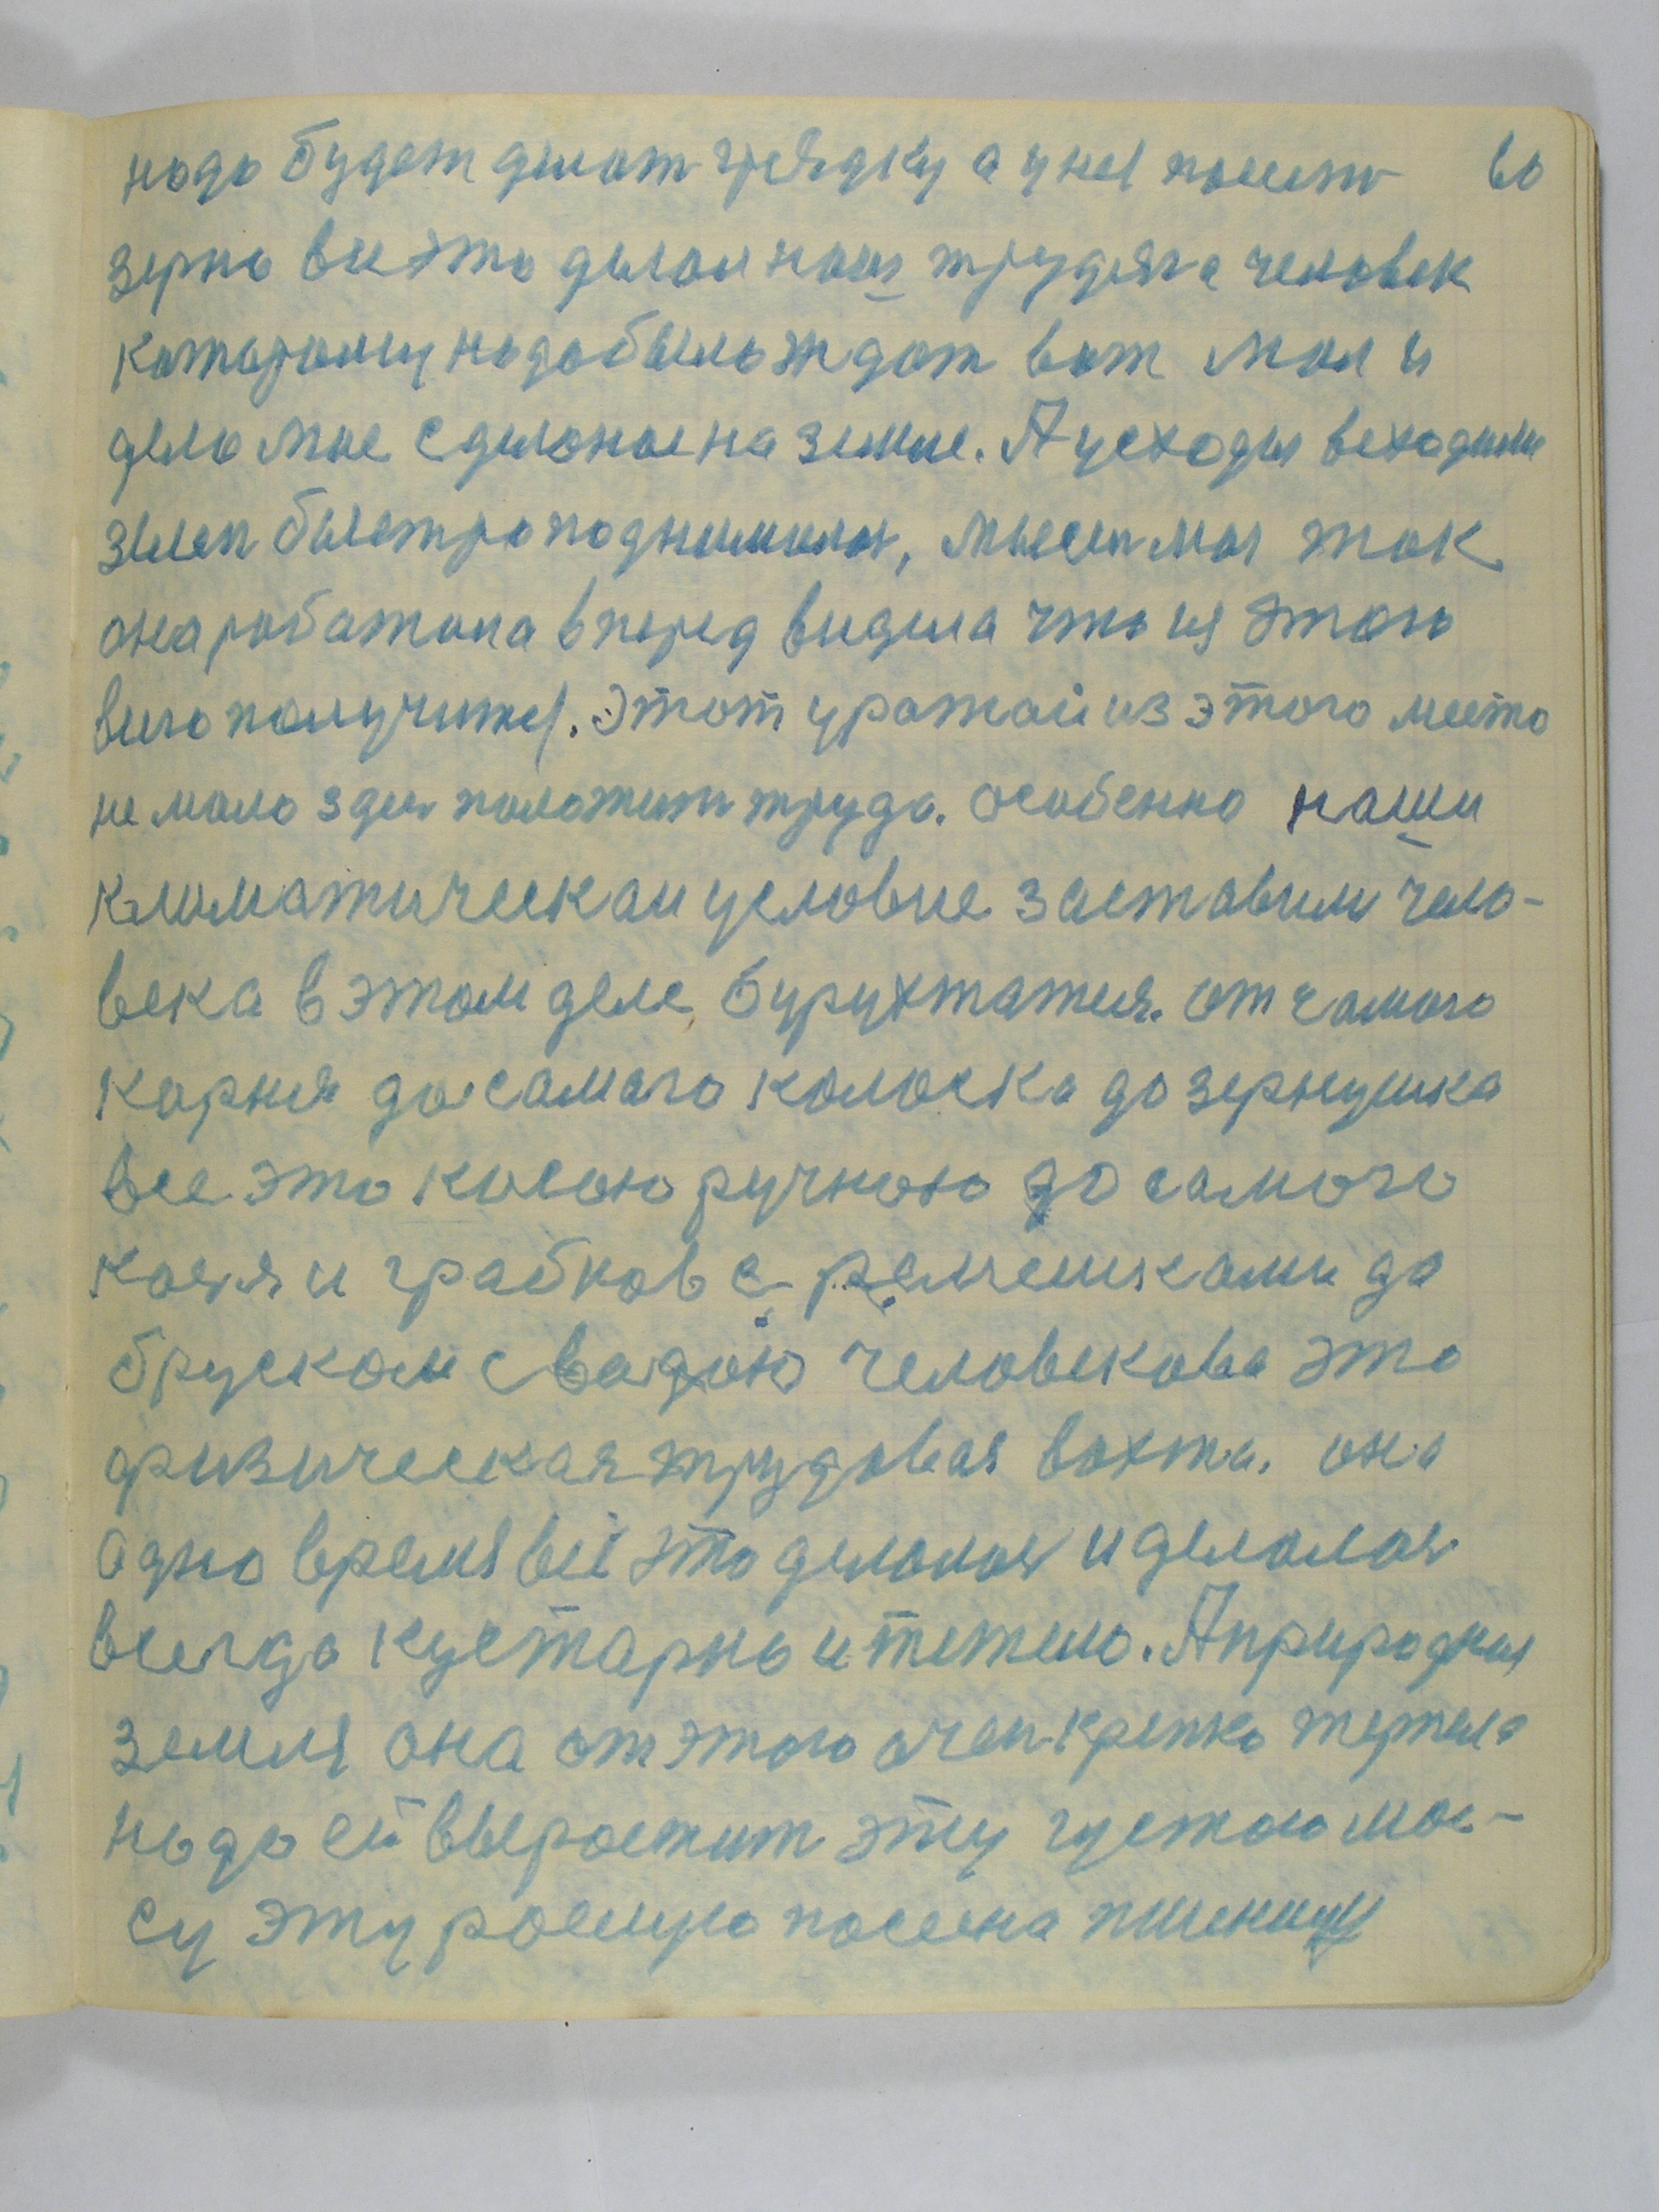 надо будет делат грядку а у нея посеят 60
зерно все это делал наш трудяга человек
катарому надо было ждат вот мол и
дело мое сделоное на земле. А усходы всходили
зелен быстро поднималас, мысел моя так
она работала вперед видела что из этого
всего получится. Этот уражай из этого место
не мало здес положит труда. особенно наши
климатическаи условие заставили чело-
века в этом деле бурухтатся. от самого
корня до самаго колоска до зернушка
все это косою ручною до самого
кося и грабков с ремешками да
бруском с вадою человекова это
физическая трудовая вахта. она
одно время все это делолоя и делолоя
всегда кустарно и тежело. А природная
земля она от этого очен крепко терпела
надо ей выростит эту густою мас-
су эту рослую посеена пшеницу